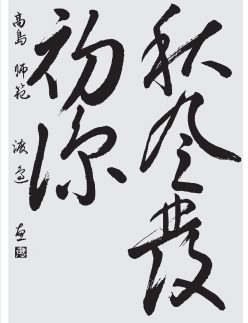 秋風發
初涼
高島 師範 渡邊